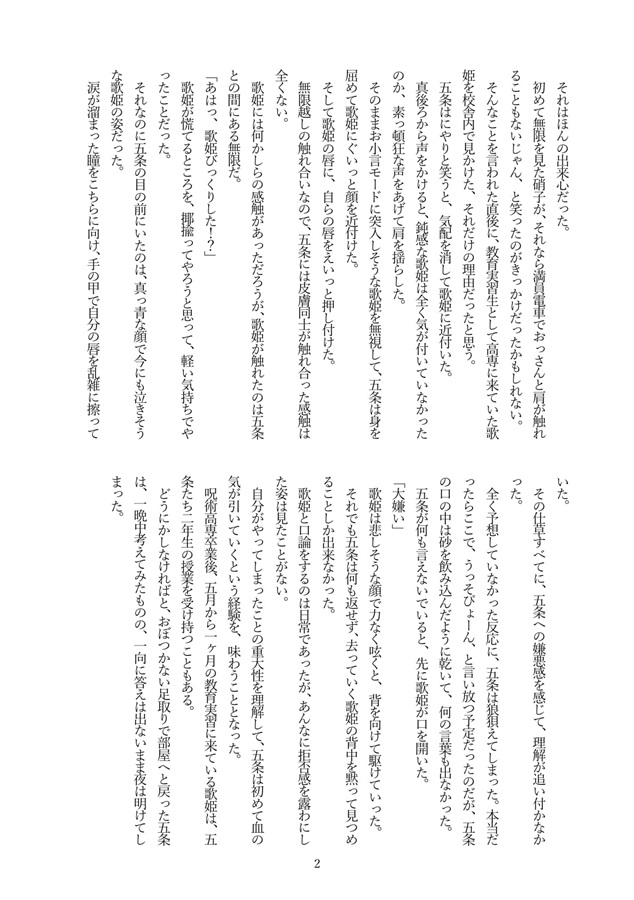 それはほんの出来心だった。
初めて無限を見た硝子が、それなら満員電車でおっさんと肩が触れ
ることもないじゃん、と笑ったのがきっかけだったかもしれない。
そんなことを言われた直後に、教育実習生として高専に来ていた歌
姫を校舎内で見かけた、それだけの理由だったと思う。
五条はにやりと笑うと、気配を消して歌姫に近付いた。
真後ろから声をかけると、鈍感な歌姫は全く気が付いていなかった
のか、素っ頓狂な声をあげて肩を揺らした。
そのままお小言モードに突入しそうな歌姫を無視して、五条は身を
屈めて歌姫にぐいっと顔を近付けた。
そして歌姫の唇に、自らの唇をえいっと押し付けた。
無限越しの触れ合いなので、五条には皮膚同士が触れ合った感触は
全くない。
歌姫には何かしらの感触があっただろうが、歌姫が触れたのは五条
との間にある無限だ。
「あはっ、歌姫びっくりした!?」
歌姫が慌てるところを、揶揄ってやろうと思って、軽い気持ちでや
ったことだった。
それなのに五条の目の前にいたのは、真っ青な顔で今にも泣きそう
な歌姫の姿だった。
涙が溜まった瞳をこちらに向け、手の甲で自分の唇を乱雑に擦って
いた。
その仕草すべてに、五条への嫌悪感を感じて、理解が追い付かなか
った。
全く予想していなかった反応に、五条は狼狽えてしまった。本当だ
ったらここで、うっそぴょーん、と言い放つ予定だったのだが、五条
の口の中は砂を飲み込んだように乾いて、何の言葉も出なかった。
五条が何も言えないでいると、先に歌姫が口を開いた。
「大嫌い」
歌姫は悲しそうな顔で力なく呟くと、背を向けて駆けていった。
それでも五条は何も返せず、去っていく歌姫の背中を黙って見つめ
ることしか出来なかった。
歌姫と口論をするのは日常であったが、あんなに拒否感を露わにし
た姿は見たことがない。
自分がやってしまったことの重大性を理解して、五条は初めて血の
気が引いていくという経験を、味わうこととなった。
呪術高専卒業後、五月から一ヶ月の教育実習に来ている歌姫は、五
条たち二年生の授業を受け持つこともある。
どうにかしなければと、おぼつかない足取りで部屋へと戻った五条
は、一晩中考えてみたものの、一向に答えは出ないまま夜は明けてし
まった。
2